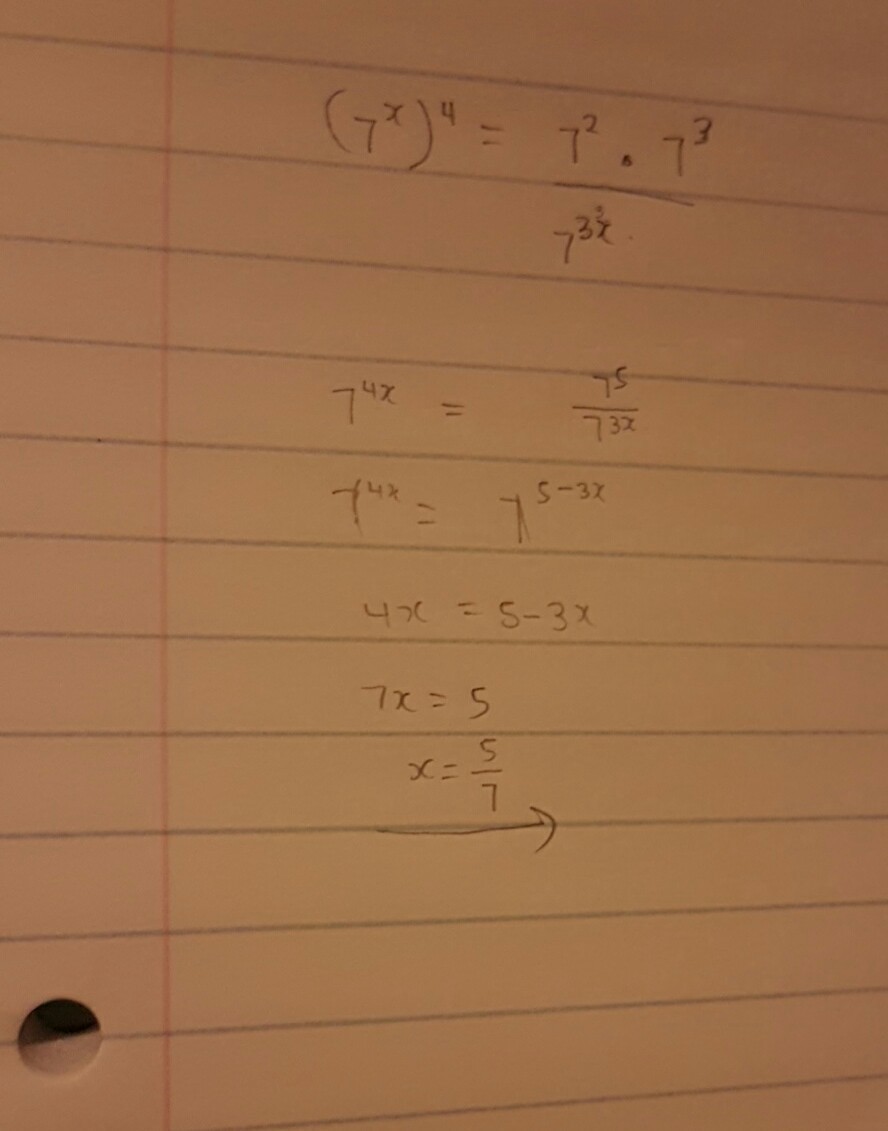 (7^x)^4 = (7^2 · 7^3)/(7^{3x})
7^{4x} = 7^5/7^{3x}
7^{4x} = 7^{5-3x}
4x = 5-3x
7x = 5
x = 5/7